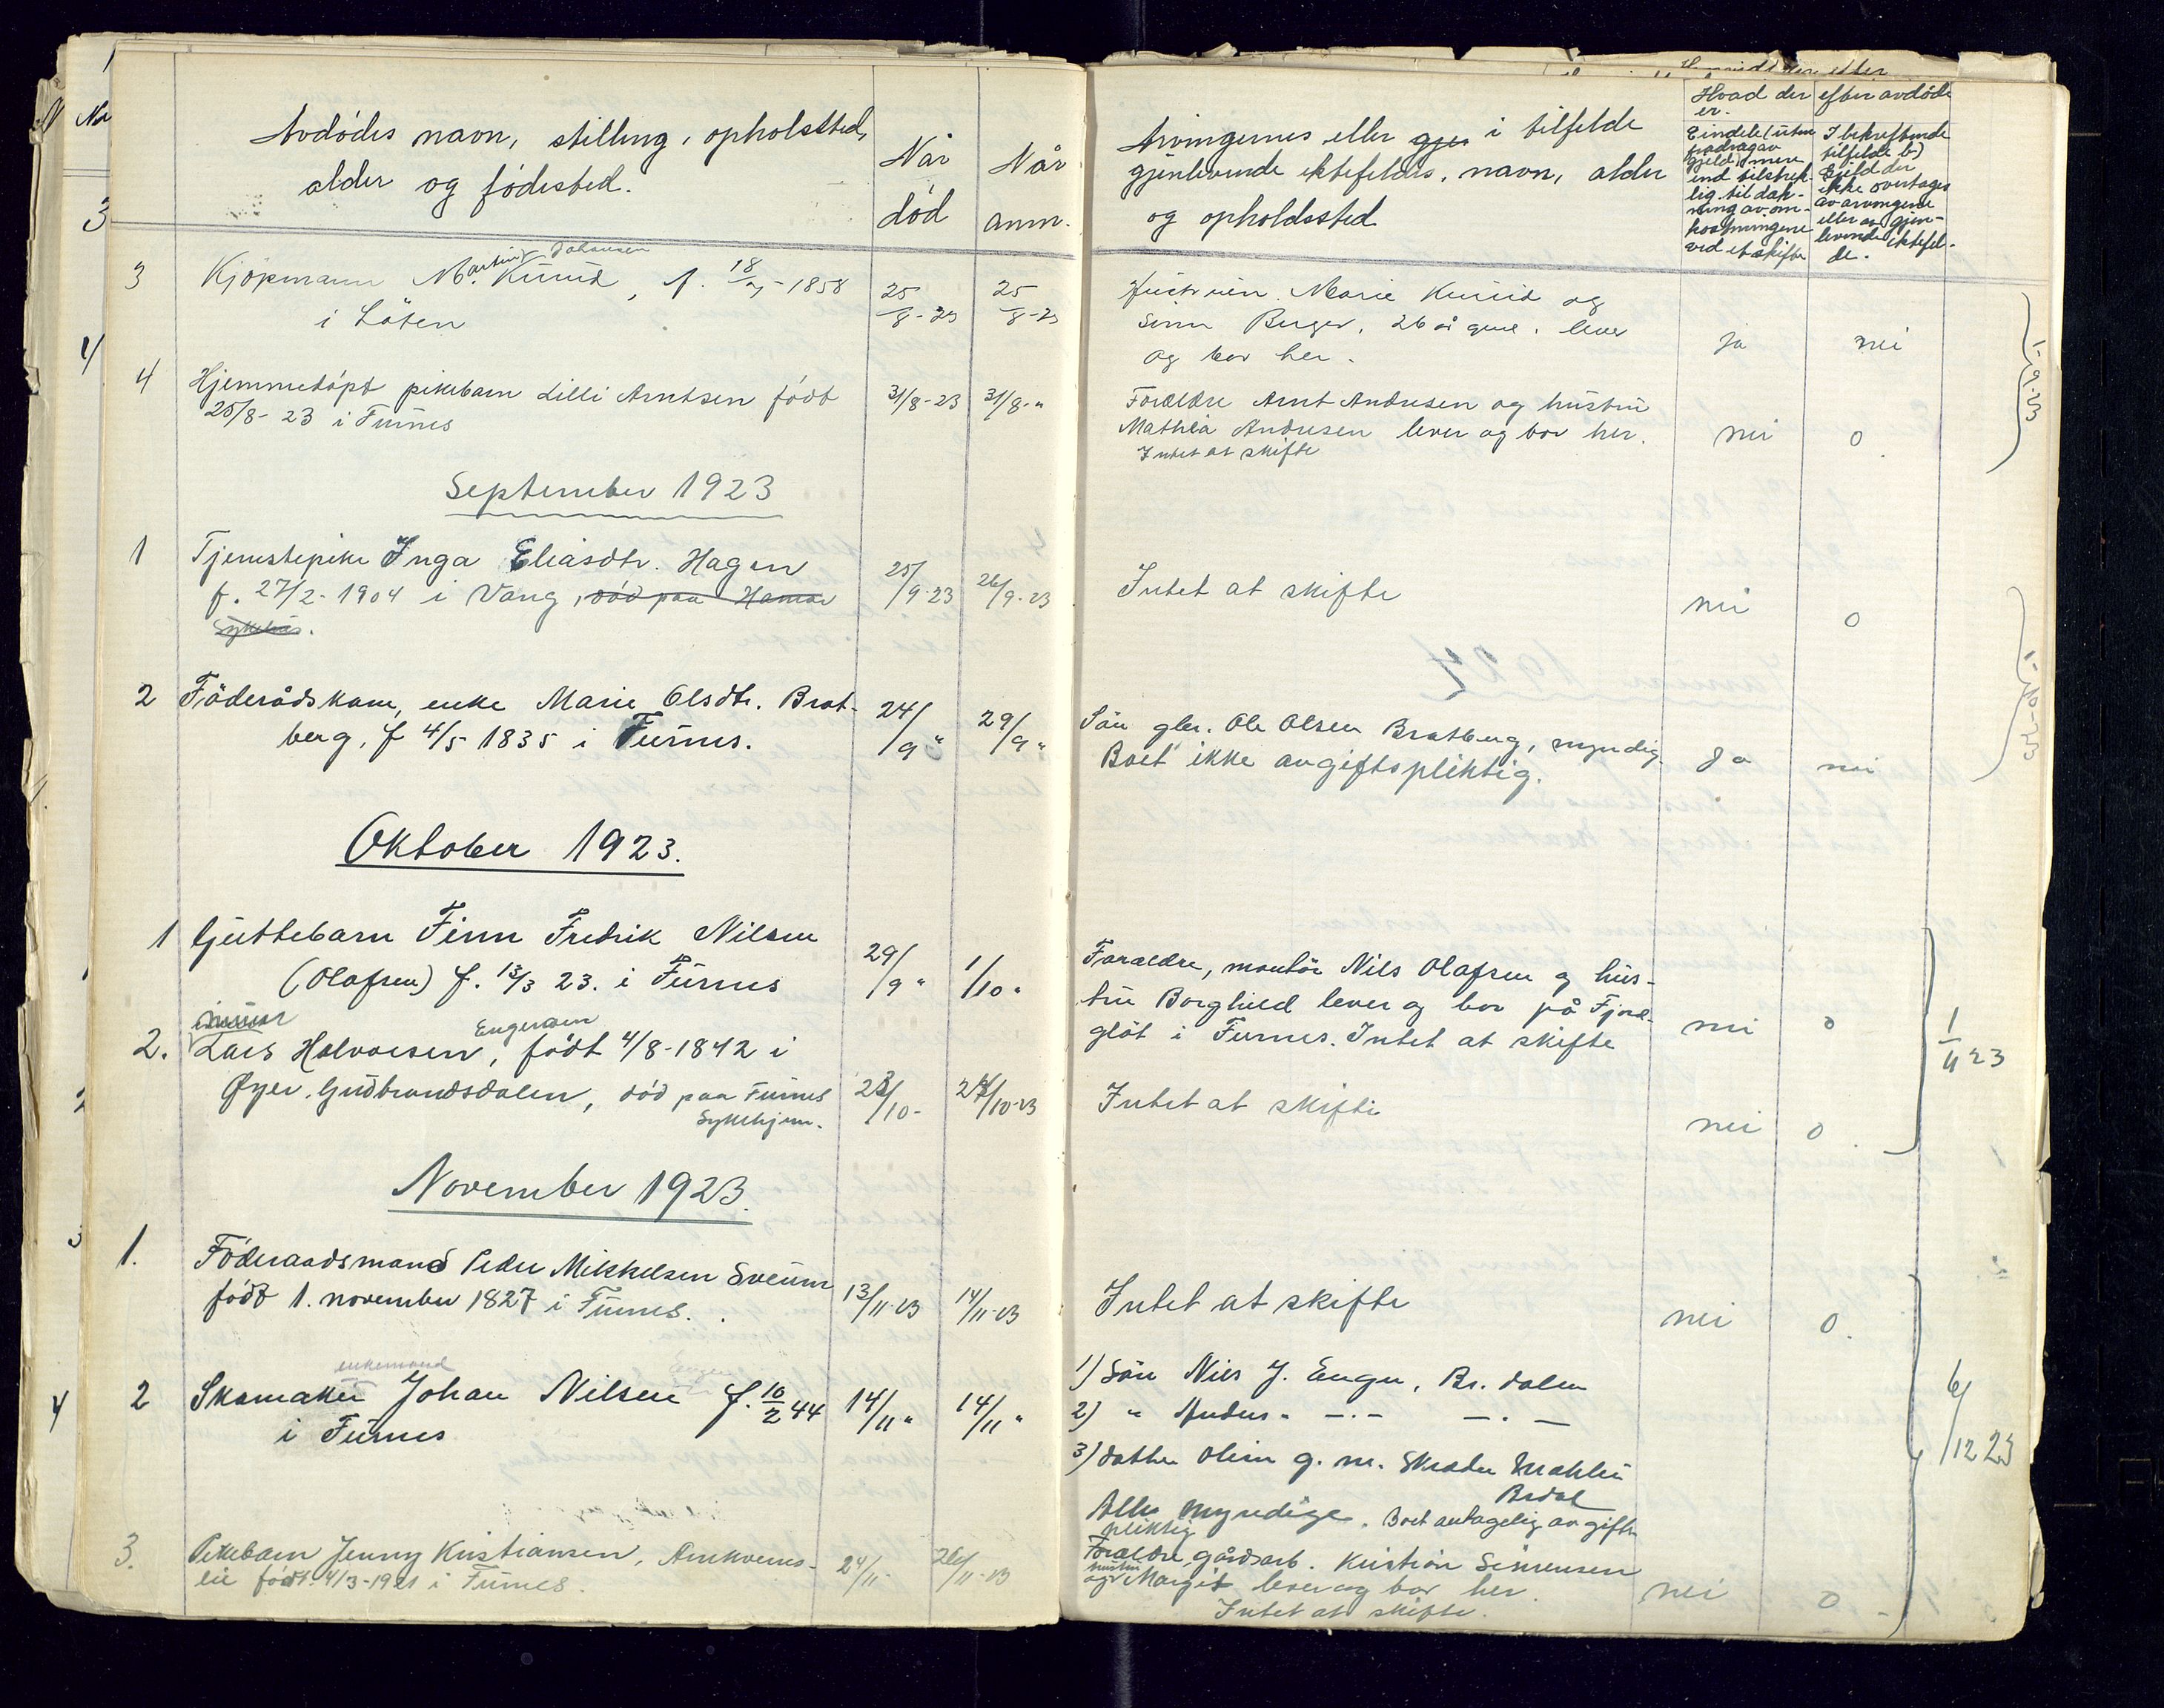 Avdødes navn, stilling, opholdssted,
alder og fødested.
Når
død
Når
anm.
3 Kjøpmann M. Kurud, f. 18/ 1858
Martin Johansen
i Løten
25/8-23
25/8-23
4 Hjemmedøpt pikebarn Lilli Arntsen født
25/8-23 i Furnes
31/8-23
31/8 "
September 1923
1 Tjenestepike Inga Eliasdtr. Hagen
f. 27/2-1904 i Vang, død paa Hamar
Sykehus.
25/9-23
26/9-23
2 Föderådskone, enke Marie Olsdtr. Brat-
berg, f 4/5 1835 i Furnes.
24/9 "
29/9 "
Oktober 1923.
1 Guttebarn Finn Fredrik Nilsen
(Olafsen) f. 13/3 23. i Furnes
29/9 "
1/10 "
2. Lars Halvorsen, født 4/8-1842 i
Øyer, Gudbrandsdalen, død paa Furnes
Sykehjem.
/10-
/10-23
November 1923.
1. Föderaadsmand Peder Mikkelsen Sveum
født 1. november 1827 i Furnes.
13/11-23
14/11-23
enkemand
2 Skomaker Johan Nilsen f. 10/2 44
i Furnes
14/11 "
14/11 "
3. Pikebarn Jenny Kristiansen,
lie født 4/3-1921 i Furnes.
24/11-
26/11-23
Arvingernes eller gjen i tilfelde
gjenlevende ektefelles, navn, alder
og opholdssted
Hvad der efter avdøde
er.
Eindele (uten
fradrag av
gjeld) mere
end tilstrek-
lig til dæk-
ning av om-
kostningene
ved et skifte
I bekreftende
tilfelde b)
Gjeld der
ikke overtages
av arvingene
eller av gjen-
levende ektefel-
de.
Hustruen Marie Kurud og
sønn Birger, 26 år gml. lever
og bor her.
ja
nei
Foreldre Arnt Andresen og hustru
Mathea Andresen lever og bor her.
Intet at skifte
nei
0
1-9-23
Intet at skifte
nei
0
Sön gbr. Ole Olsen Bratberg, myndig
Boet ikke avgiftspliktig.
Ja
nei
1-10-23
Foreldre, montör Nils Olafsen og hus-
tru Borghild lever og bor på Fjord-
glöt i Furnes. Intet at skifte
nei
0
1/11 23
Intet at skifte
nei
0
Intet at skifte
nei
0.
1) Sön Nils J. Enger, Br. dalen
2) " Anders " — . — — . —
3) datter Oline g. m.
Brdal
Alle myndige. Boet antagelig avgifts
pliktig
6/12 23
Foreldre, gårdsarb. Kristian Simensen
og hustru Margit lever og bor her.
Intet at skifte.
nei
0